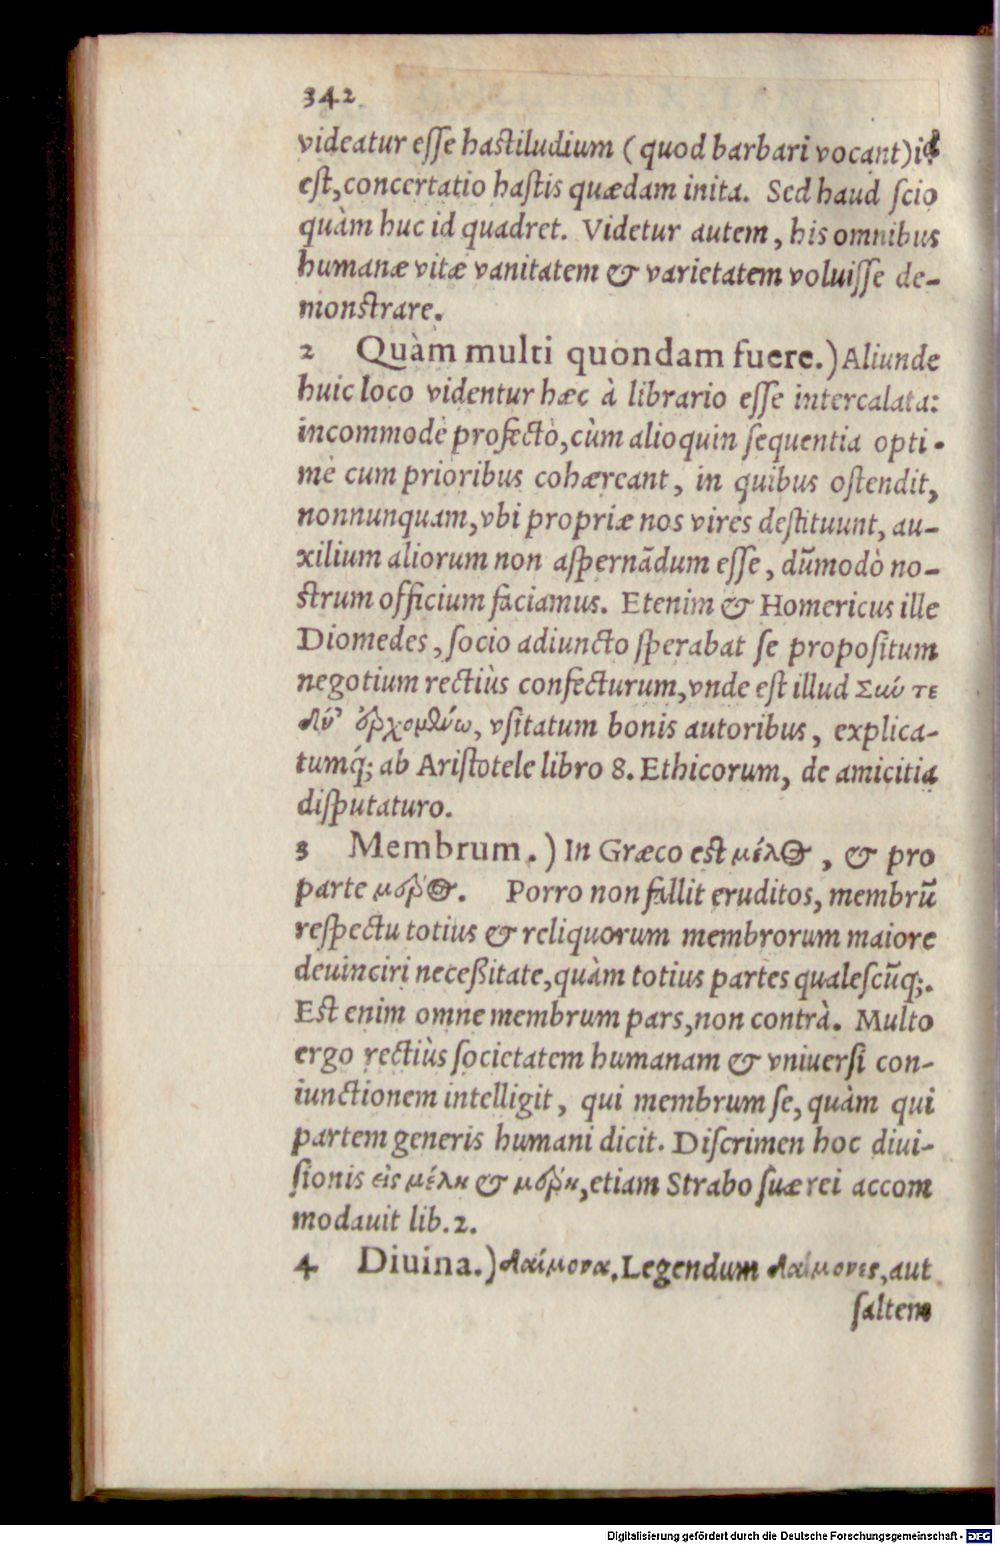 342
videatur esse hastiludium (quod barbari vocant) id
est, concertatio hastis quædam inita. Sed haud scio
quàm huc id quadret. Videtur autem, his omnibus
humanæ vitæ vanitatem & varietatem voluisse de-
monstrare.
2 Quàm multi quondam fuere.) Aliunde
huic loco videntur hæc à librario esse intercalata:
incommodè profectò, cùm alioquin sequentia opti-
mè cum prioribus cohæreant, in quibus ostendit,
nonnunquam, vbi propriæ nos vires destituunt, au-
xilium aliorum non aspernādum esse, dūmodò no-
strum officium faciamus. Etenim & Homericus ille
Diomedes, socio adiuncto sperabat se propositum
negotium rectiùs confecturum, vnde est illud Σύν τε
δύ' ἐρχομένω, vsitatum bonis autoribus, explica-
tumq́; ab Aristotele libro 8. Ethicorum, de amicitia
disputaturo.
3 Membrum.) In Græco est μέλος, & pro
parte μέρος. Porro non fallit eruditos, membrū
respectu totius & reliquorum membrorum maiore
deuinciri necessitate, quàm totius partes qualescūq;.
Est enim omne membrum pars, non contrà. Multo
ergo rectiùs societatem humanam & vniuersi con-
iunctionem intelligit, qui membrum se, quàm qui
partem generis humani dicit. Discrimen hoc diui-
sionis εἰς μέλη & μέρη, etiam Strabo suæ rei accom
modauit lib. 2.
4 Diuina.) δαίμονα. Legendum δαίμονες, aut
saltem
Digitalisierung gefördert durch die Deutsche Forschungsgemeinschaft - DFG